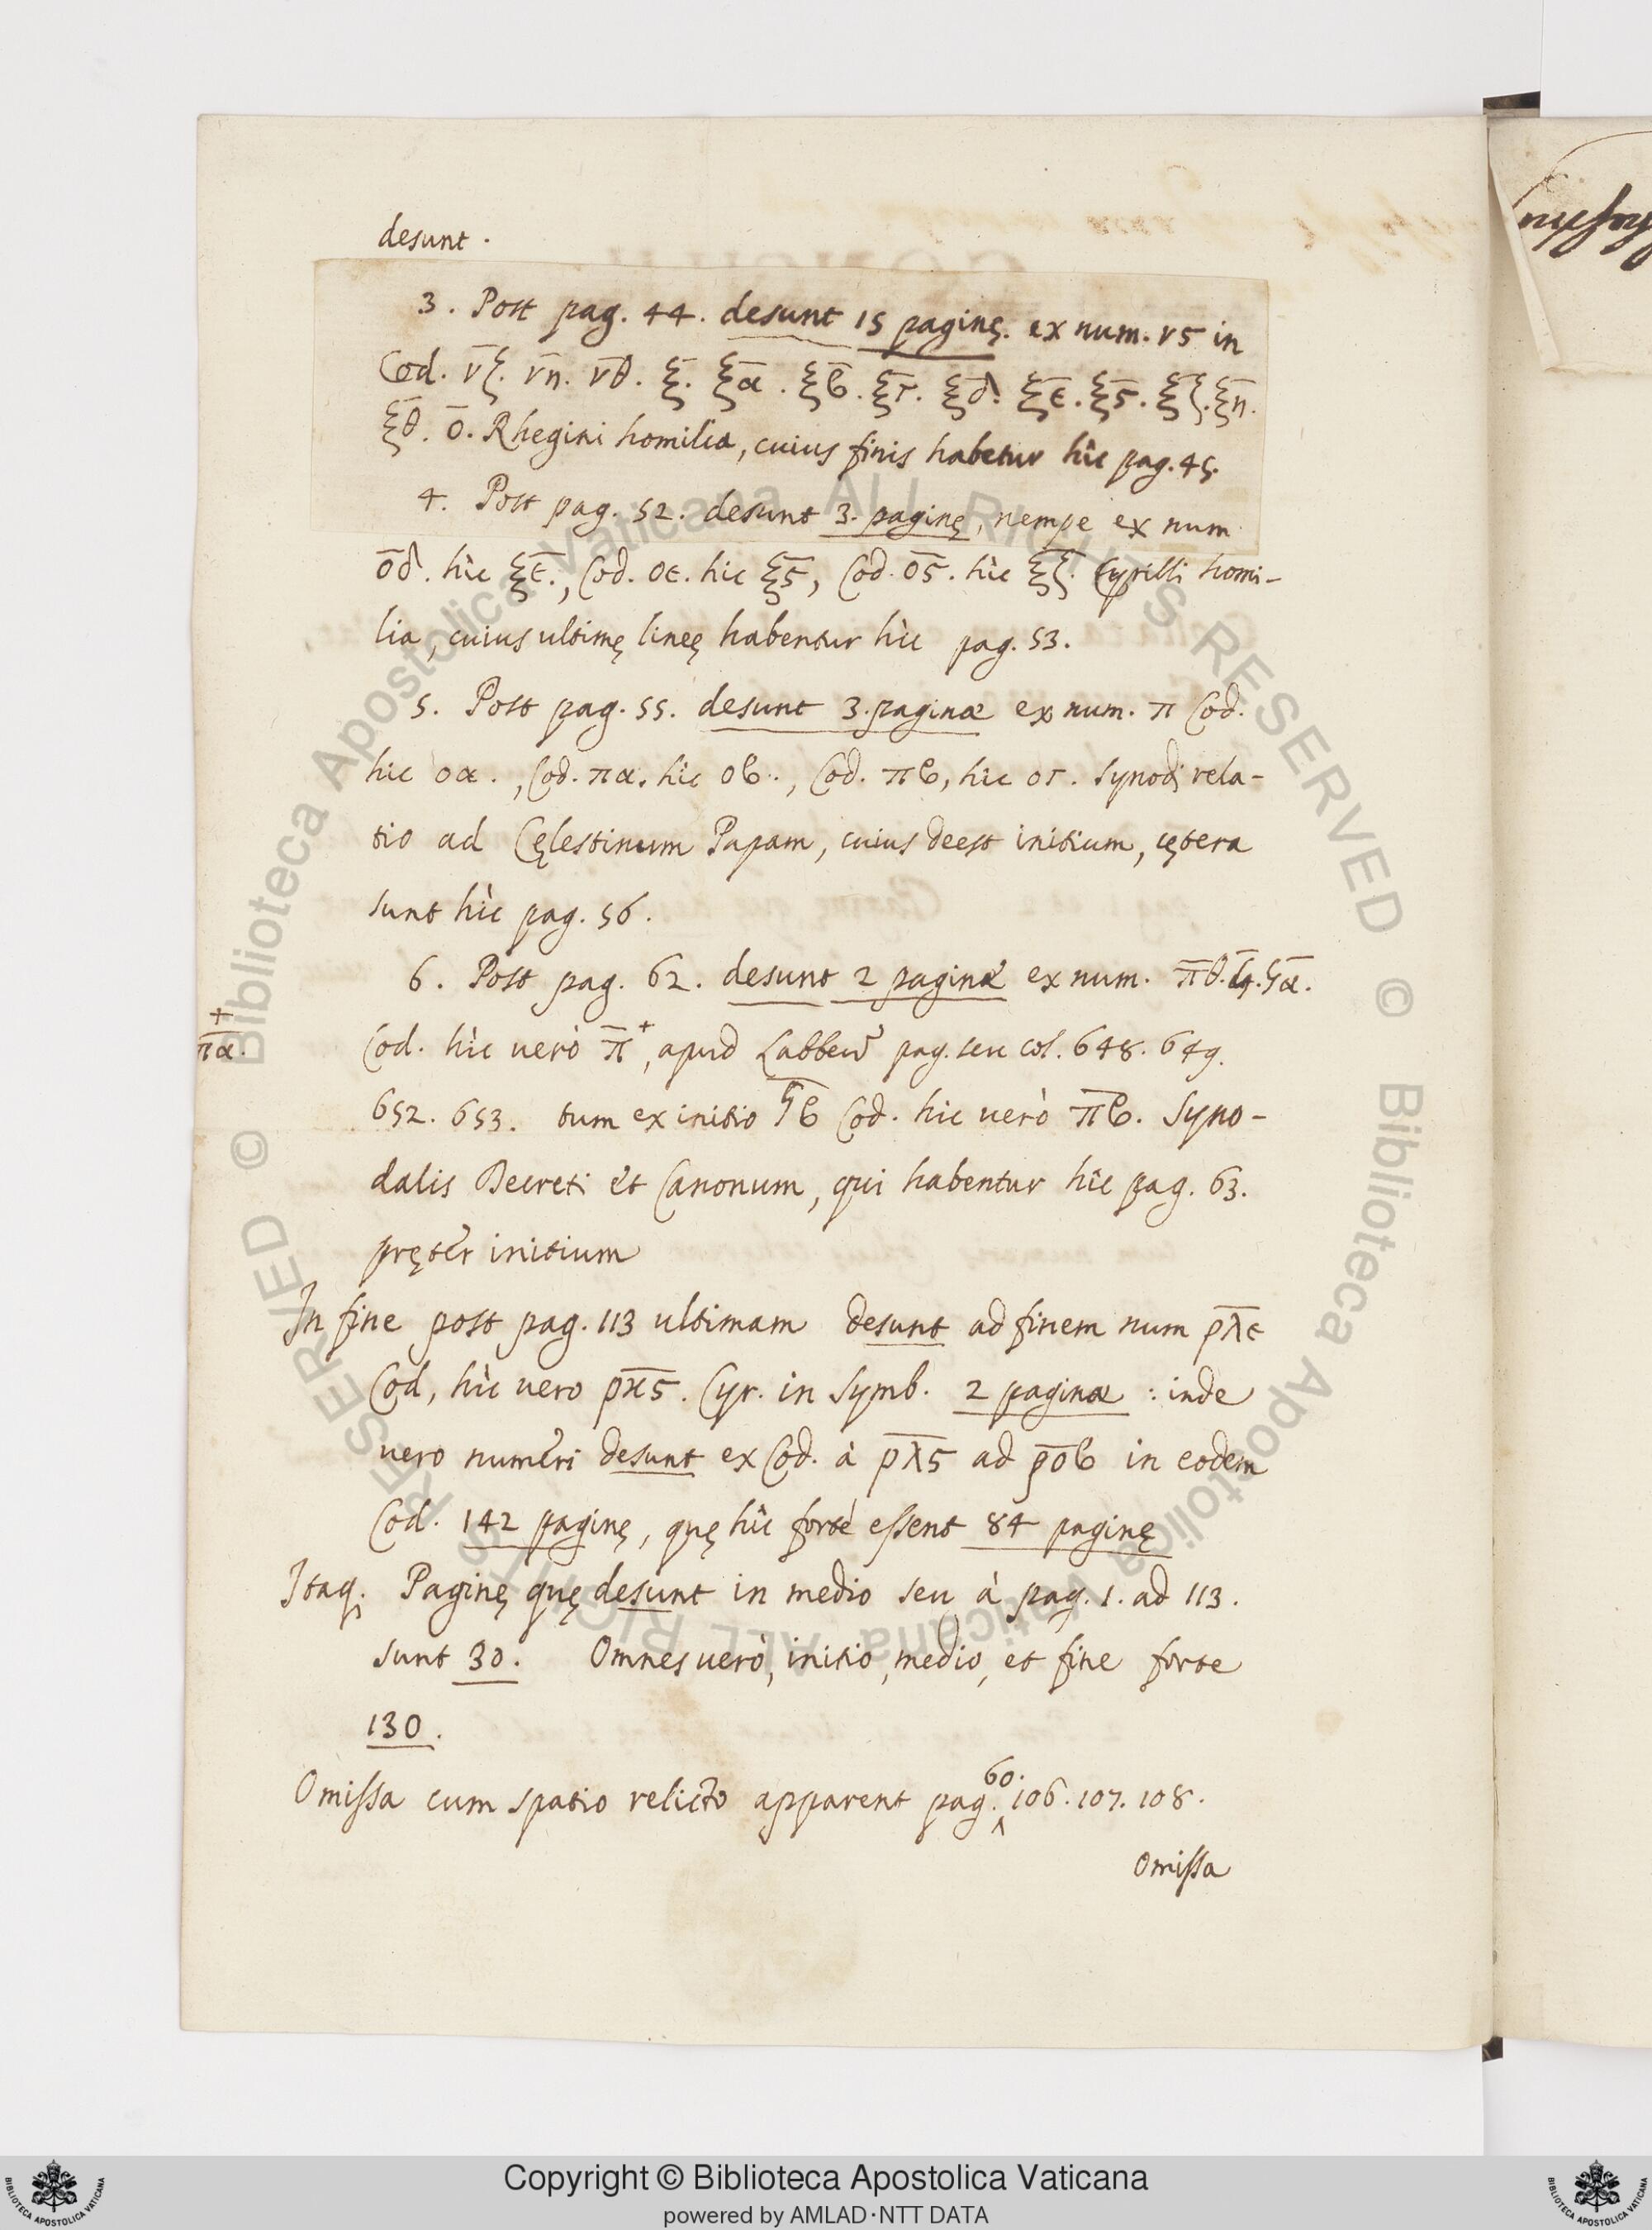 desunt.
3. Post pag. 44. desunt 15 paginę. ex num. νϛ in
Cod. ν̅ζ. ν̅η. ν̅θ. ξ̅. ξ̅α̅. ξ̅β. ξ̅γ. ξ̅δ. ξ̅ε. ξ̅ϛ. ξ̅ζ. ξ̅η.
ξ̅θ. ο̅. Rhegini homilia, cuius finis habetur hîc pag. 45.
4. Post pag. 52. desunt 3. paginę, nempe ex num
ο̅δ. hîc ξ̅ε., Cod. οε. hic ξ̅ϛ, Cod. ο̅ϛ. hîc ξ̅ζ. Cyrilli homi-
lia, cuius ultimę lineę habentur hîc pag. 53.
5. Post pag. 55. desunt 3. paginæ ex num. π Cod.
hic οα., Cod. πα. hîc οβ., Cod. πβ, hic ογ. Synodi rela-
tio ad Cęlestinum Papam, cuius deest initium, cętera
sunt hîc pag. 56.
6. Post pag. 62. desunt 2 paginæ ex num. π̅θ. ϟ̅. ϟα̅.
π̅α̅.+
Cod. hîc uerò π̅+, apud Labbeũ pag. seu col. 648. 649.
652. 653. tum ex initio ϟ̅β Cod. hic uerò π̅β. Syno-
dalis Decreti et Canonum, qui habentur hîc pag. 63.
pręter initium
In fine post pag. 113 ultimam desunt ad finem num ρ̅λ̅ε
Cod, hîc uero ρ̅κ̅ϛ. Cyr. in Symb. 2 paginæ : inde
uero numeri desunt ex Cod. à ρ̅λ̅ϛ ad ρ̅ο̅β in eodem
Cod. 142 paginę, quę hîc fortè essent 84 paginę
Itaq; Paginę quę desunt in medio seu à pag. 1. ad 113.
sunt 30. Omnes uerò, initio, medio, et fine forte
130.
60.
Omissa cum spatio relicto apparent pag. ʌ 106. 107. 108.
Omissa
Copyright © Biblioteca Apostolica Vaticana
powered by AMLAD·NTT DATA